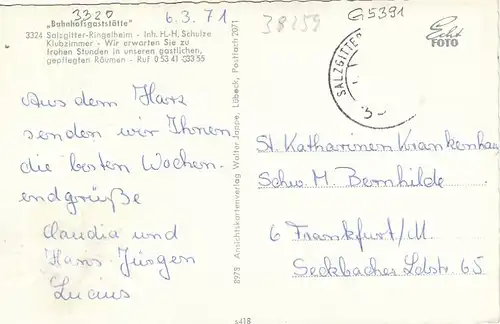 3320
6.3.71
38259
G5391
„Bahnhofsgaststätte"
3324 Salzgitter-Ringelheim - Inh. H.-H. Schulze
Klubzimmer - Wir erwarten Sie zu
frohen Stunden in unseren gastlichen,
gepflegten Räumen - Ruf 0 53 41 / 33 55
Echt
FOTO
SALZGITTER
Aus dem Harz
senden wir Ihnen
die besten Wochen-
endgrüße
Claudia und
Hans-Jürgen
Lucius
8978 Ansichtskartenverlag Walter Jappe, Lübeck, Postfach 2071
St. Katharinen Krankenhaus
Schw. M. Bernhilde
6 Frankfurt/M.
Seckbacher Ldstr. 65
s418